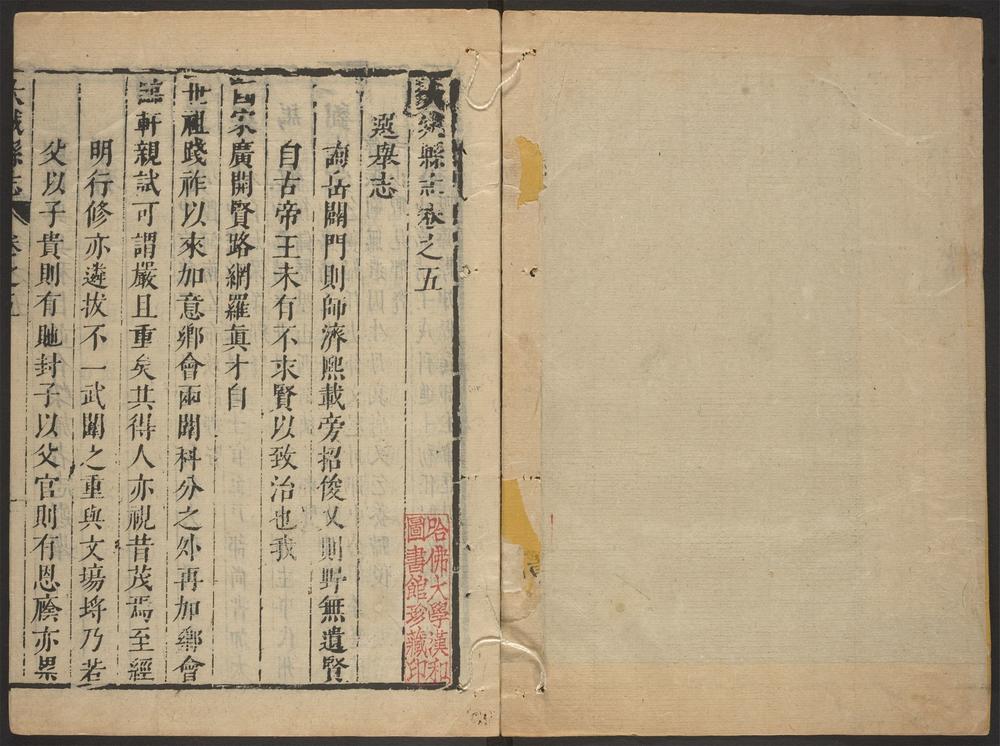 大城縣志卷之五
選舉志
詢岳闢門則師濟熙載旁招俊乂則野無遺賢
自古帝王未有不求賢以致治也我
國家廣開賢路網羅真才自
世祖踐祚以來加意鄉會兩闈科分之外再加鄉會
臨軒親試可謂嚴且重矣其得人亦視昔茂焉至經
明行修亦遴拔不一武闈之重與文塲埒乃若
父以子貴則有貤封子以父官則有恩廕亦畢
大城縣志 卷之五
哈佛大學漢和
圖書館珍藏印